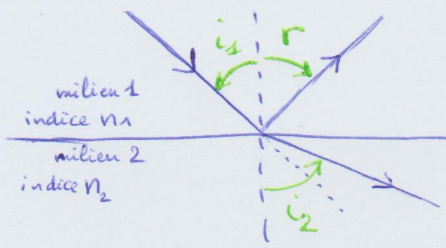 i₁ r
milieu 1
indice n₁
milieu 2
indice n₂
i₂